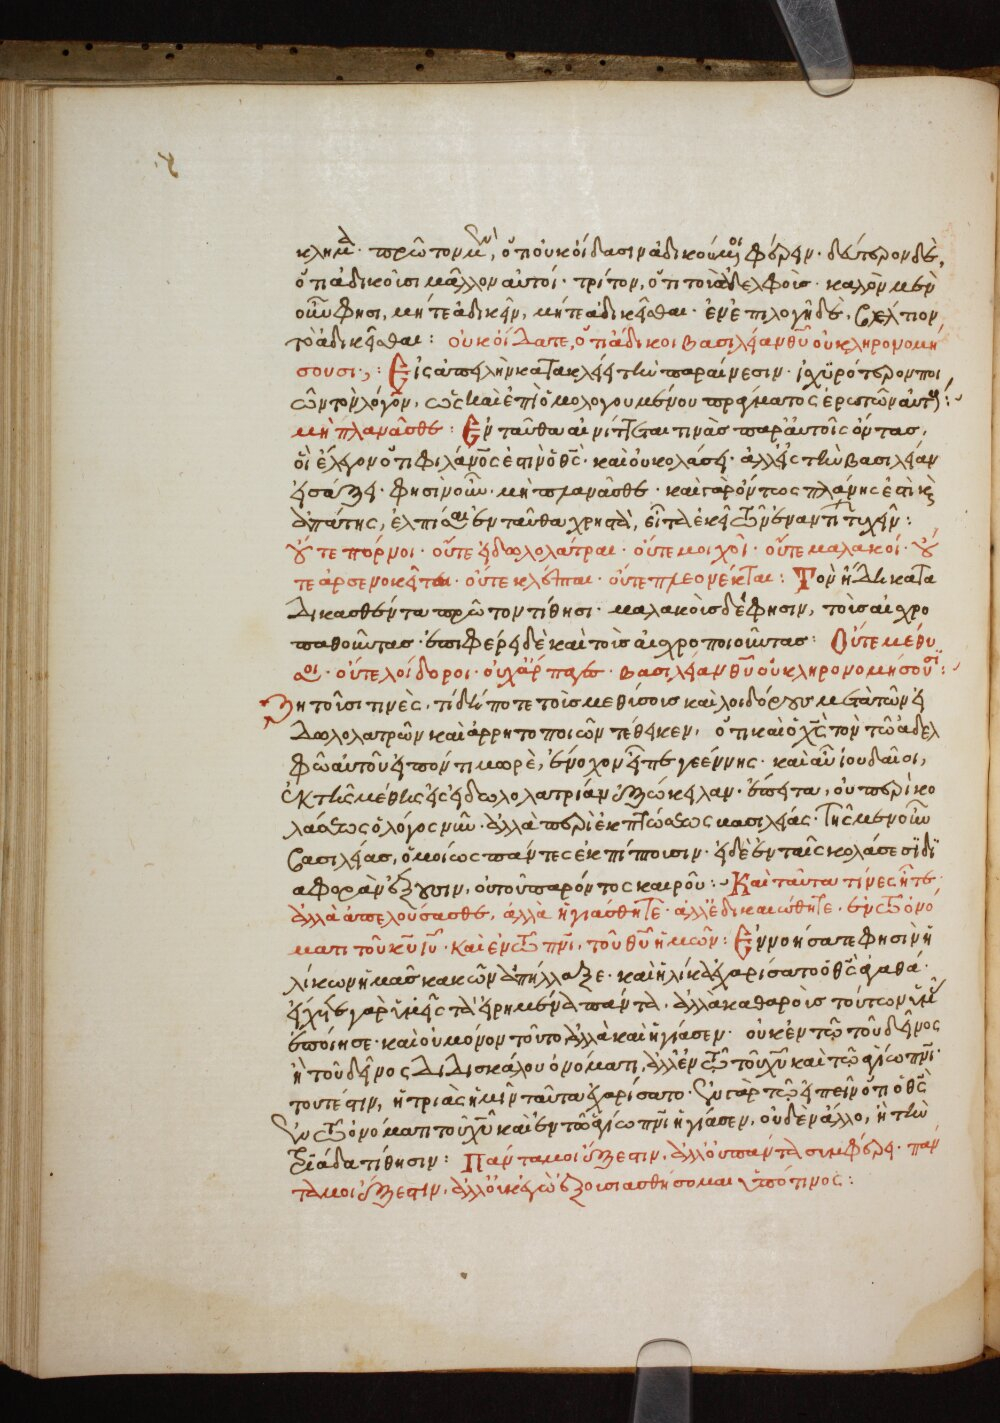 κλημα· πρῶτον μὲν, ὅτι οὐκ οἴδασιν ἀδικούμενοι φέρειν· δεύτερον δὲ,
ὅτι ἀδικοῦσι μᾶλλον αὐτοί· τρίτον, ὅτι τοὺς ἀδελφοὺς· καλὸν μὲν
οὖν φησι, μήτε ἀδικεῖν, μήτε ἀδικεῖσθαι· ἐν ἐπιλογῇ δὲ, βέλτιον
τὸ ἀδικεῖσθαι: οὐκ οἴδατε, ὅτι ἄδικοι βασιλείαν θῦ οὐ κληρονομή
σουσι·: Εἰς ἀπειλὴν κατακλείει τὴν παραίνεσιν· ἰσχυρότερον ποι
ῶν τὸν λόγον, ὡς καὶ ἐπὶ ὁμολογουμένου πράγματος ἐρωτῶν αὐτούς:
μὴ πλανᾶσθε: Ἐνταῦθα αἰνίττεται τινὰς παρ' αὐτοῖς ὄντας,
οἳ ἔλεγον ὅτι φιλάνος ἐστὶν ὁ θς· καὶ οὐ κολάσει· ἀλλ' εἰς τὴν βασιλείαν
εἰσάξει· φησὶν οὖν· μὴ πλανᾶσθε· καὶ γὰρ ὄντως πλάνης ἐστὶ κ
ἀπάτης, ἐλπίσαι ἐνταῦθα χρηστὰ, εἶτα ἐκεῖ τῶν ἐναντίων τυχεῖν:
οὔτε πόρνοι· οὔτε εἰδωλολάτραι· οὔτε μοιχοὶ· οὔτε μαλακοί· οὔ
τε ἀρσενοκοῖται· οὔτε κλέπται· οὔτε πλεονέκται: Τὸν ἤδη κατα
δικασθέντα πρῶτον τίθησι· μαλακοὺς δέ φησιν, τοὺς αἰσχρο
παθοῦντας· ἐπιφέρει δὲ καὶ τοὺς αἰσχροποιοῦντας: Οὔτε μέθυ
σοι· οὔτε λοίδοροι· οὐχ ἅρπαγες· βασιλείαν θῦ οὐ κληρονομήσουσι:
Ζητοῦσι τινὲς, τί δήποτε τοὺς μεθύσους καὶ λοιδόρους μετὰ τῶν εἰ
δωλολατρῶν καὶ ἀρρητοποιῶν τέθεικεν, ὅτι καὶ ὁ χς τὸν τῷ ἀδελ
φῷ αὐτοῦ εἰπόντι μωρὲ, ἔνοχον εἶπε γεέννης· καὶ αὖ ἰουδαῖοι,
ἐκ τῆς μέθης εἰς εἰδωλολατρίαν ἐξώκειλαν· ἔπειτα, οὐ περὶ κο
λάσεως ὁ λόγος νῦν· ἀλλὰ περὶ ἐκπτώσεως βασιλείας· τῆς μὲν οὖν
βασιλείας, ὁμοίως πάντες ἐκπίπτουσιν· εἰ δὲ ἐν ταῖς κολάσεσι δι
αφορὰν ἕξουσιν, οὐ τοῦ παρόντος καιροῦ:· Καὶ ταῦτα τινὲς ἦτε·
ἀλλὰ ἀπελούσασθε, ἀλλὰ ἡγιάσθητε· ἀλλ' ἐδικαιώθητε· ἐν τῷ ὀνό
ματι τοῦ κῦ ἰῦ· καὶ ἐν τῷ πνι, τοῦ θῦ ἡμῶν: Ἐννοήσατε φησὶν ἡ
λίκων ἡμᾶς κακῶν ἀπήλλαξε· καὶ ἡλίκα ἐχαρίσατο ὁ θς ἀγαθά·
εἴχετε γὰρ ὑμεῖς τὰ εἰρημένα πάντα, ἀλλὰ καθαροὺς τούτων ὑμᾶς
ἐποίησε· καὶ οὐ μόνον τοῦτο, ἀλλὰ καὶ ἡγίασεν· οὐκ ἐν τῷ τοῦ δεῖνος
ἢ τοῦ δεῖνος διδασκάλου ὀνόματι, ἀλλ' ἐν τῷ τοῦ χῦ καὶ τῷ ἁγίῳ πνι·
τουτέστιν, ἡ τριὰς ἡμῖν ταῦτα ἐχαρίσατο· ἐν γὰρ τῷ εἰπεῖν ὅτι ὁ θς
ἐν τῷ ὀνόματι τοῦ χῦ καὶ ἐν τῷ ἁγίῳ πνι ἡγίασεν, οὐδὲν ἄλλο, ἢ τὴν
τριάδα τίθησιν: Πάντα μοι ἔξεστιν, ἀλλ' οὐ πάντα συμφέρει· πάν
τα μοι ἔξεστιν, ἀλλ' οὐκ ἐγὼ ἐξουσιασθήσομαι ὑπό τινος: